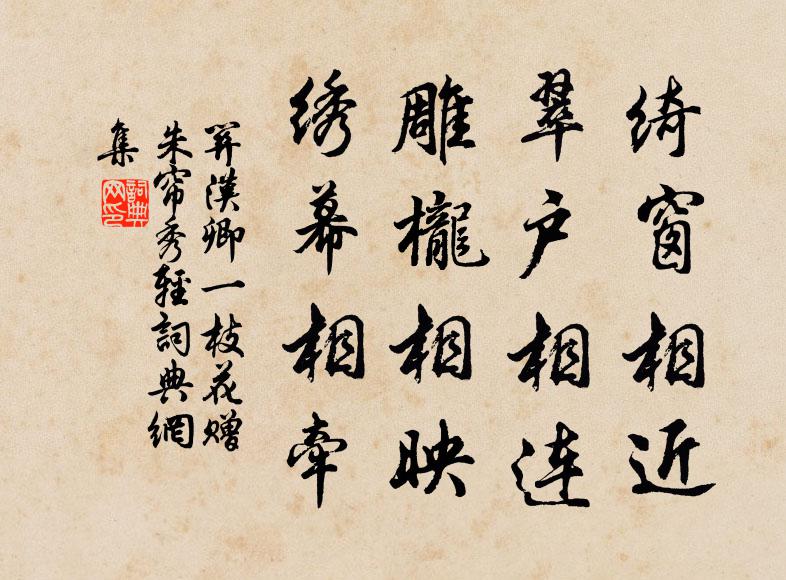 绮窗相近
翠户相连
雕櫳相映
绣幕相牵
關漢卿一枝花赠
朱帘秀輕詞典網
集
詞典
网印